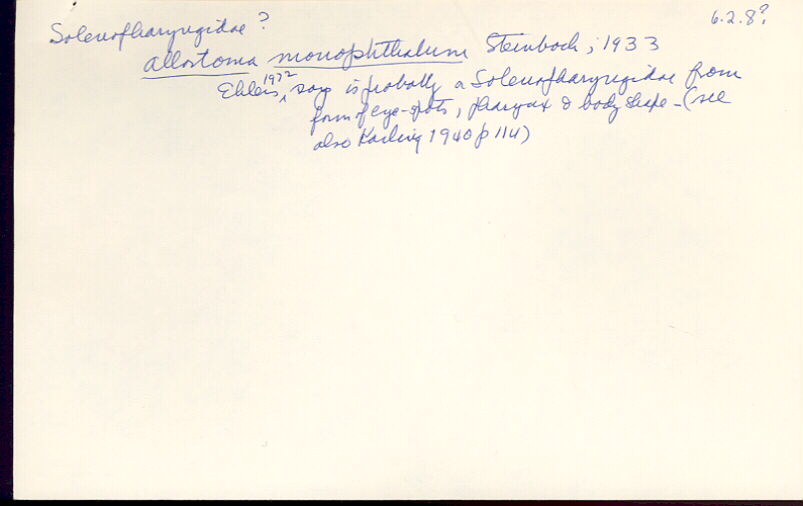 Solenopharyngidae ? 6.2.8?
Allostoma monophthalum Steinbock, 1933
Ehlers, 1972 says is probably a Solenopharyngidae from
form of eye-spots, pharynx & body shape - (see
also Karling 1940 p 114)